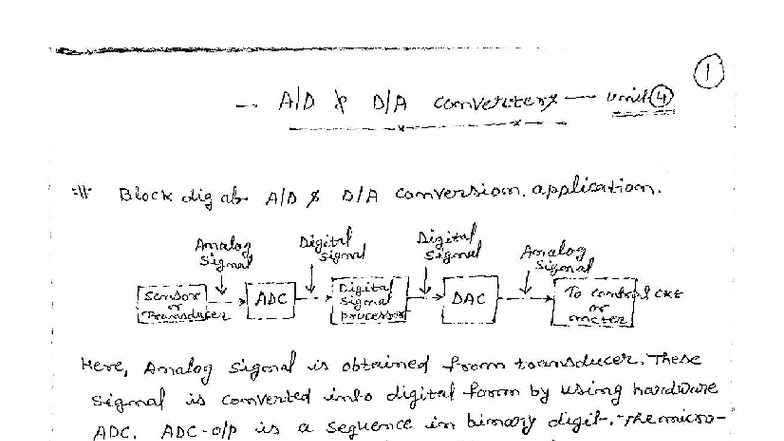 1
A/D & D/A converters — unit 4
:// Block dig of A/D & D/A conversion. application.
Analog Signal
Digital Signal
Digital Signal
Analog Signal
Sensor or Transducer
ADC
Digital Signal processor
DAC
To control ckt or meter
Here, Analog signal is obtained from transducer. These
signal is converted into digital form by using hardware
ADC. ADC-o/p is a sequence in binary digit-. The micro-